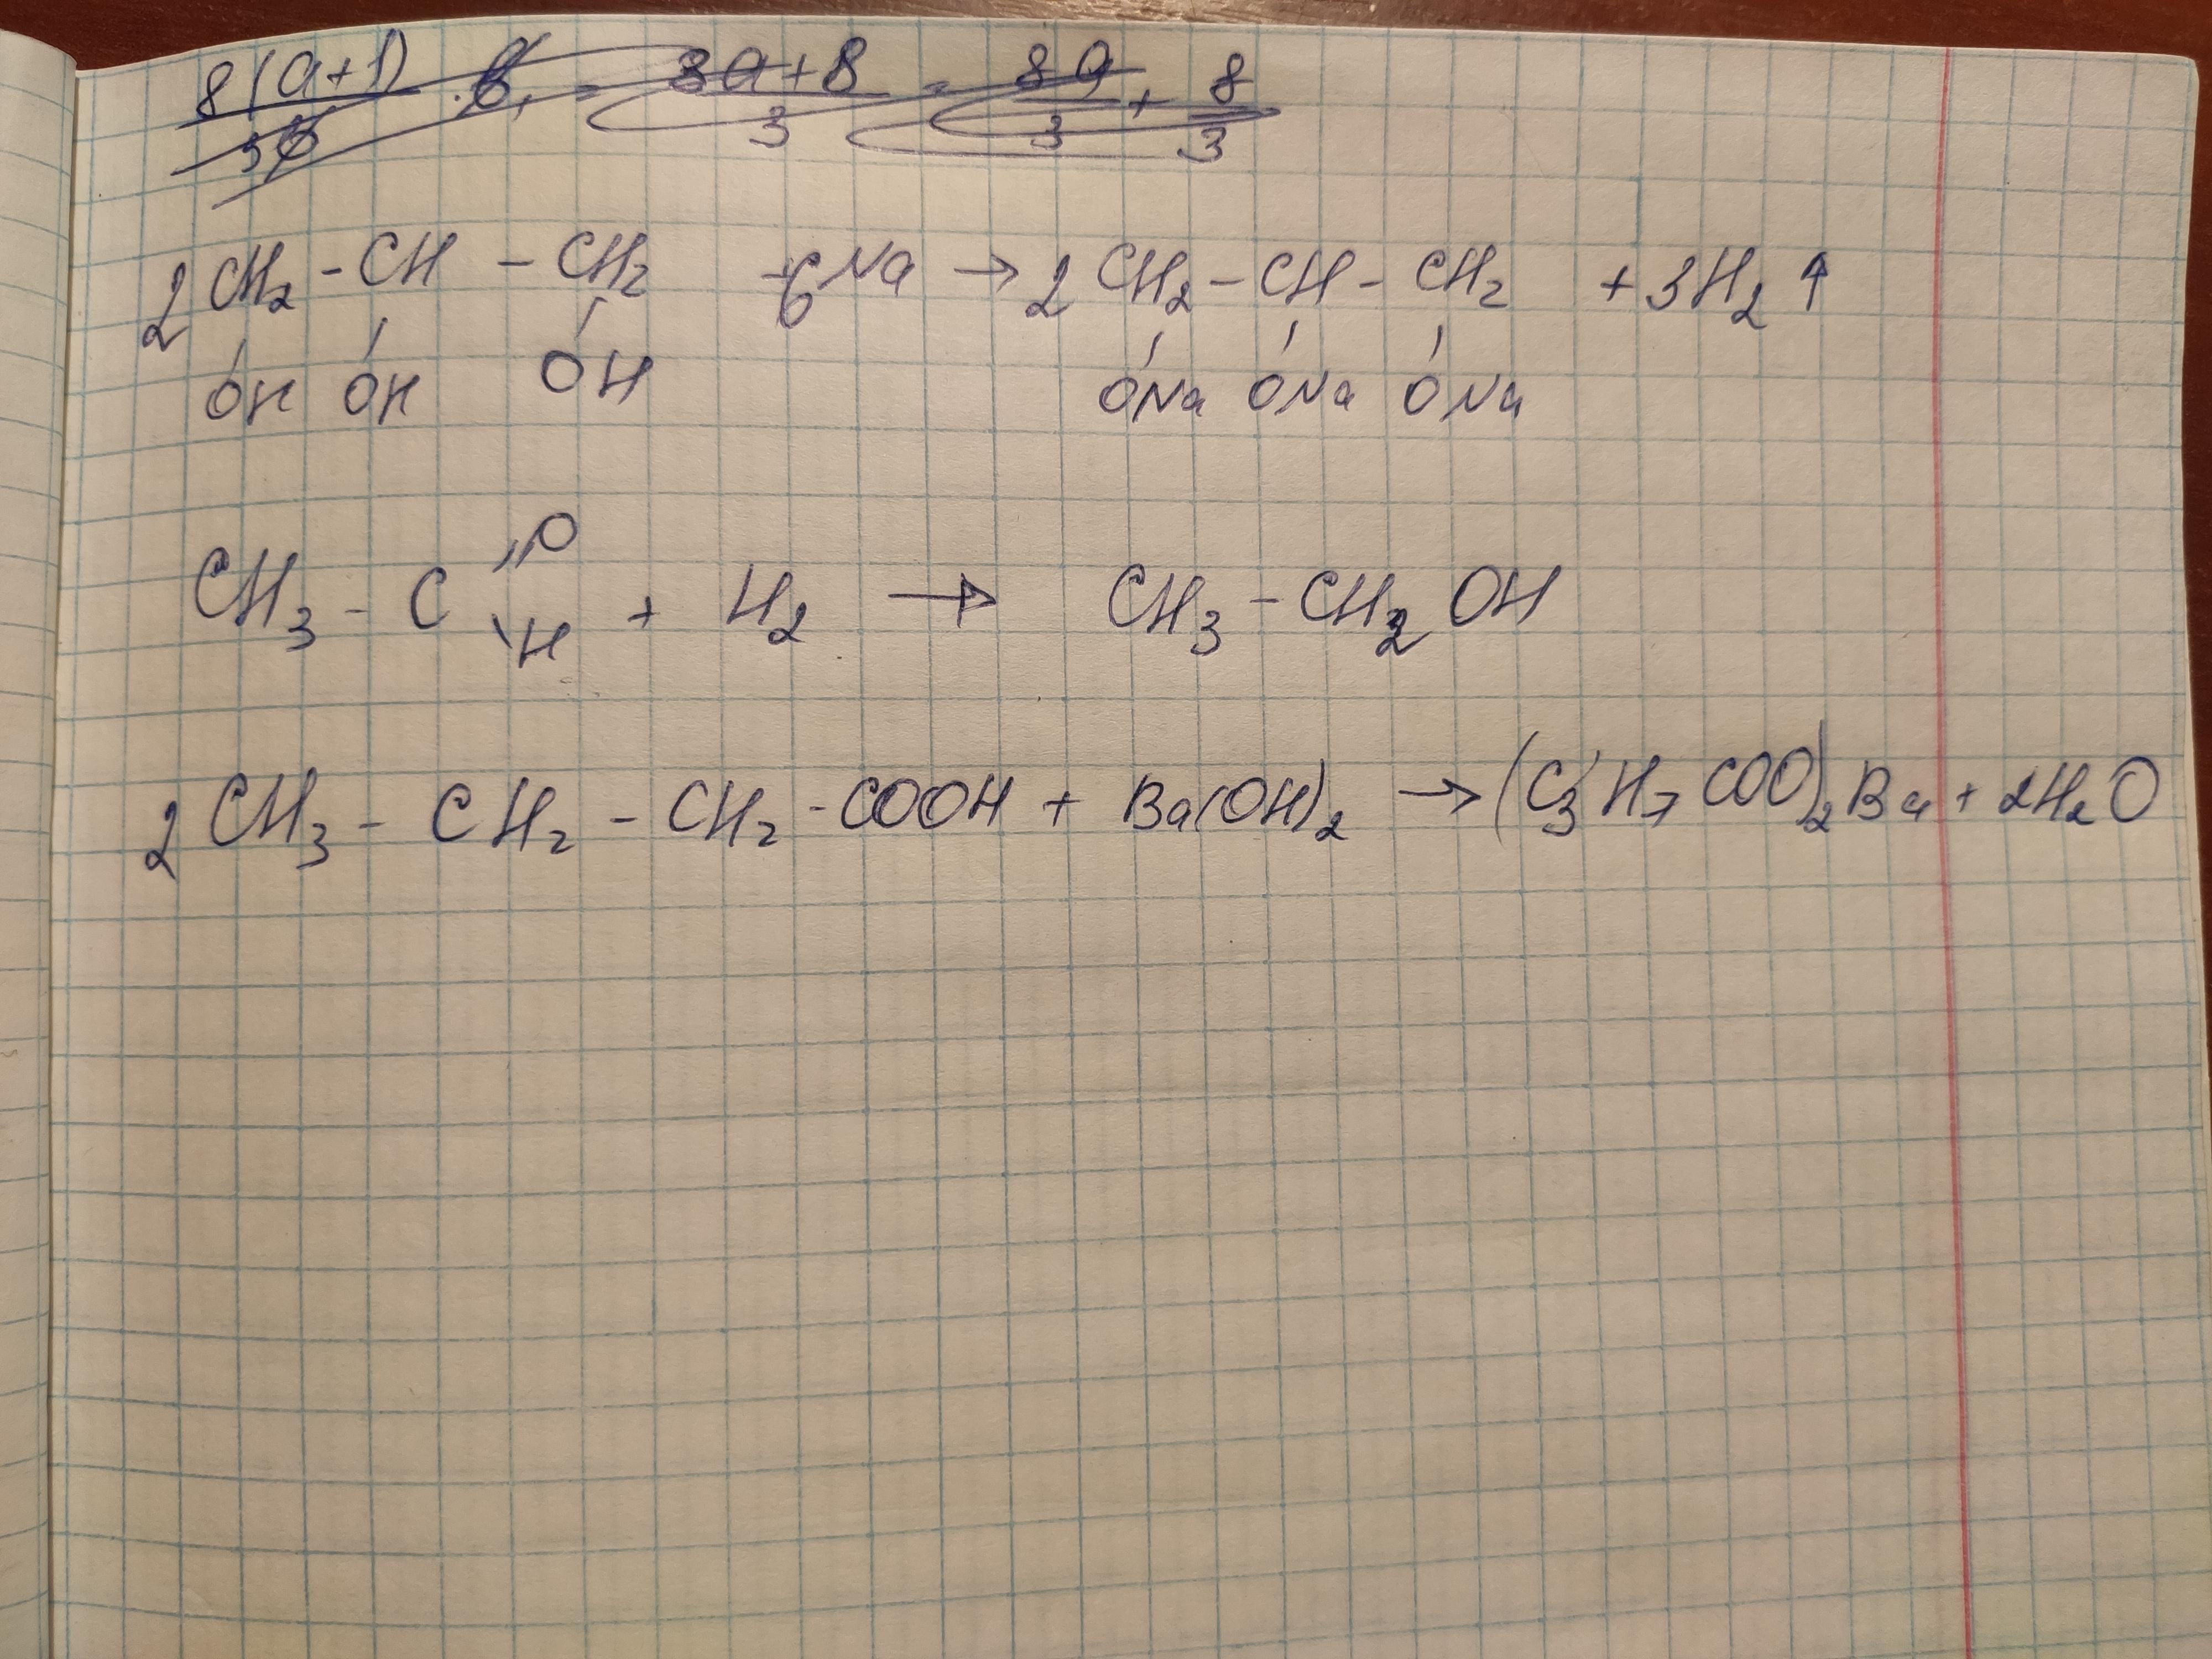 8(a+1)/3b · b = 8a+8/3 = 8a/3 + 8/3
2CH₂ - CH - CH₂ + 6Na → 2CH₂ - CH - CH₂ + 3H₂↑
OH OH OH ONa ONa ONa
CH₃ - C =O \H + H₂ → CH₃ - CH₂OH
2CH₃ - CH₂ - CH₂ - COOH + Ba(OH)₂ → (C₃H₇COO)₂Ba + 2H₂O